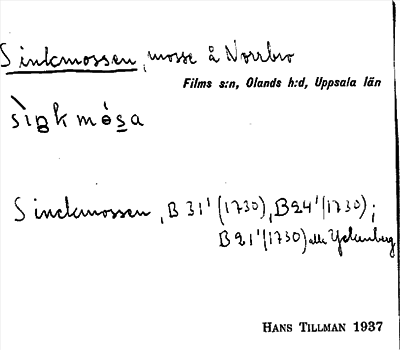 Sinkmossen, mosse å Norrbro
Films s:n, Olands h:d, Uppsala län
sìŋk mósa
Sinckmossen, B 31' (1730), B 24' (1730);
B 21' (1730) alla
HANS TILLMAN 1937